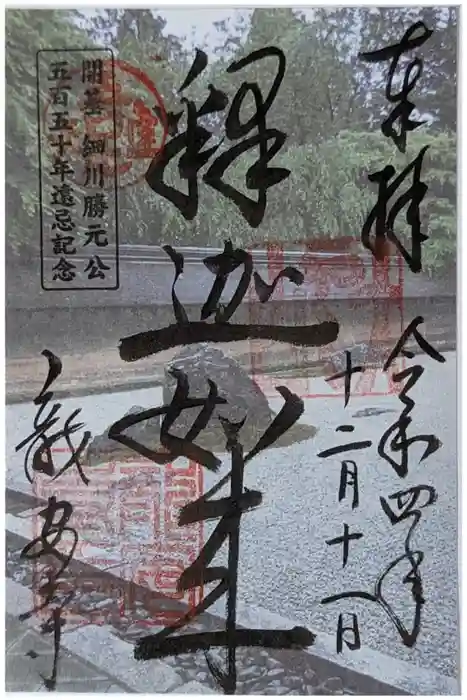 奉拝
令和四年
十二月十一日
釋迦如来
開基 細川勝元公
五百五十年遠忌記念
龍安寺